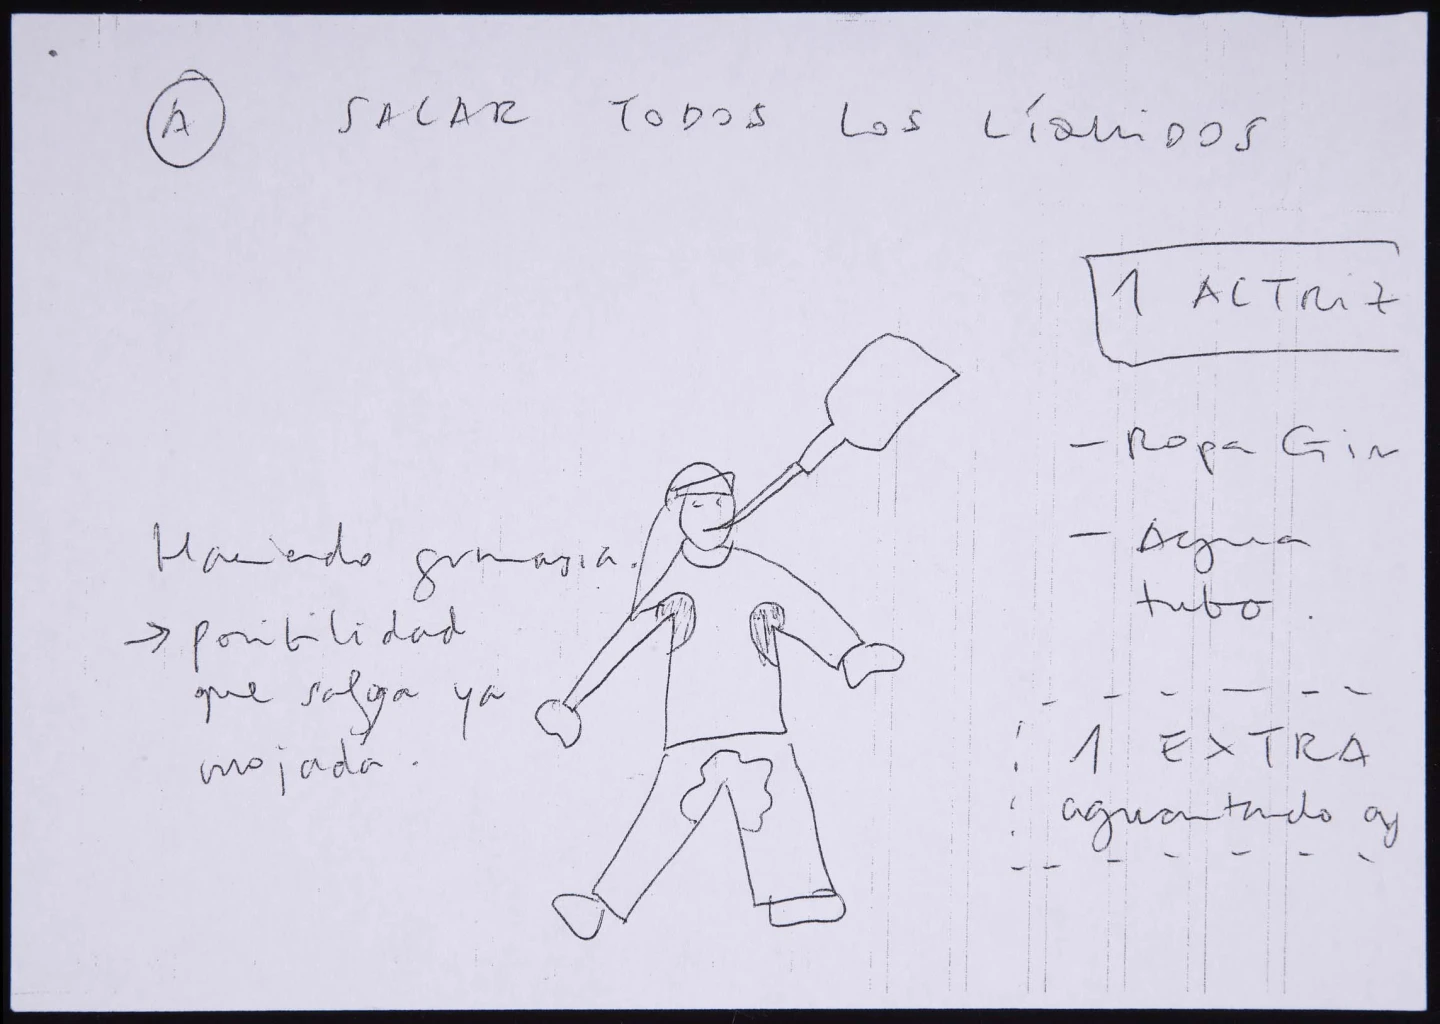 A SACAR TODOS LOS LÍQUIDOS
1 ACTRIZ
- Ropa Gim
- Agua
tubo.
Haciendo gimnasia.
→ posibilidad
que salga ya
mojada.
1 EXTRA
aguantando ag